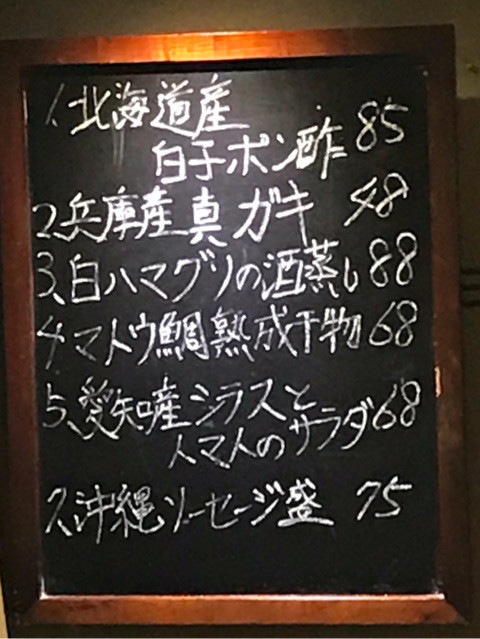 1、北海道産
白子ポン酢 85
2、兵庫産真ガキ 48
3、白ハマグリの酒蒸し 88
4、マトウ鯛熟成干物 68
5、愛知産シラスと
トマトのサラダ 68
7、沖縄ソーセージ盛 75